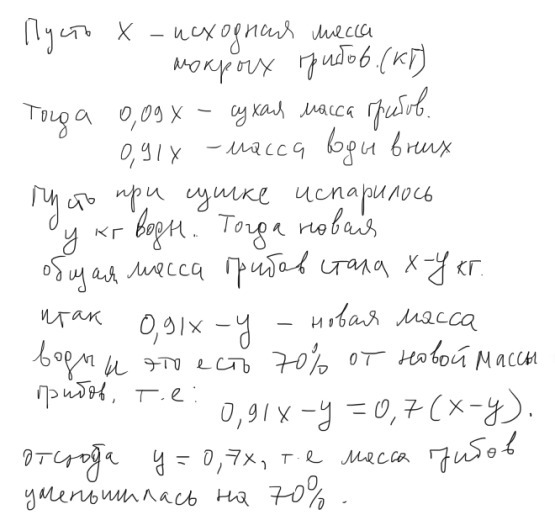 Пусть X – исходная масса
мокрых грибов.(кг)
Тогда 0,09X – сухая масса грибов.
0,91X – масса воды в них
Пусть при сушке испарилось
y кг воды. Тогда новая
общая масса грибов стала x–y кг.
итак 0,91x–y – новая масса
воды и это есть 70% от новой массы
грибов, т.е:
0,91x–y=0,7(x–y).
отсюда y=0,7x, т.е масса грибов
уменьшилась на 70%.